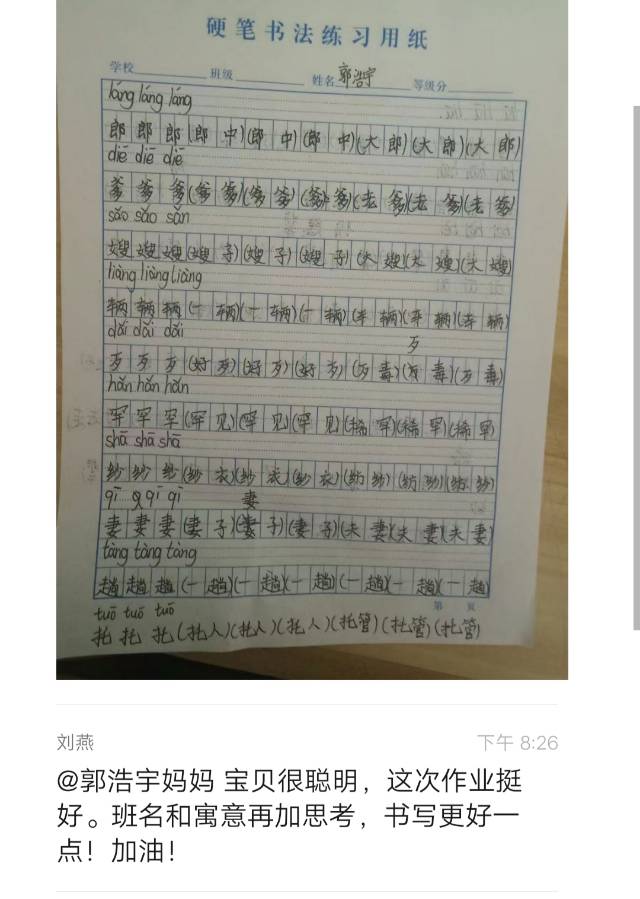 硬笔书法练习用纸
学校 班级 姓名 郭浩宇 等级分
láng láng láng
郎 郎 郎 (郎 中) (郎 中) (郎 中) (大 郎) (大 郎) (大 郎)
diē diē diē
爹 爹 爹 (爹 爹) (爹 爹) (爹 爹) (老 爹) (老 爹) (老 爹)
sǎo sǎo sǎn
嫂 嫂 嫂 (嫂 子) (嫂 子) (嫂 子) (大 嫂) (大 嫂) (大 嫂)
liàng liàng liàng
辆 辆 辆 (一 辆) (一 辆) (一 辆) (车 辆) (车 辆) (车 辆)
dǎi dǎi dǎi
歹
歹 歹 歹 (好 歹) (好 歹) (好 歹) (歹 毒) (歹 毒) (歹 毒)
hǎn hǎn hǎn
罕 罕 罕 (罕 见) (罕 见) (罕 见) (稀 罕) (稀 罕) (稀 罕)
shā shā shā
纱 纱 纱 (纱 衣) (纱 衣) (纱 衣) (纺 纱) (纺 纱) (纺 纱)
qī qī qī 妻
妻 妻 妻 (妻 子) (妻 子) (妻 子) (夫 妻) (夫 妻) (夫 妻)
tàng tàng tàng
趟 趟 趟 (一 趟) (一 趟) (一 趟) (一 趟) (一 趟) (一 趟)
第 页
tuō tuō tuō
托 托 托 (托人) (托人) (托人) (托管) (托管) (托管)
刘燕 下午 8:26
@郭浩宇妈妈 宝贝很聪明，这次作业挺
好。班名和寓意再加思考，书写更好一
点！加油！